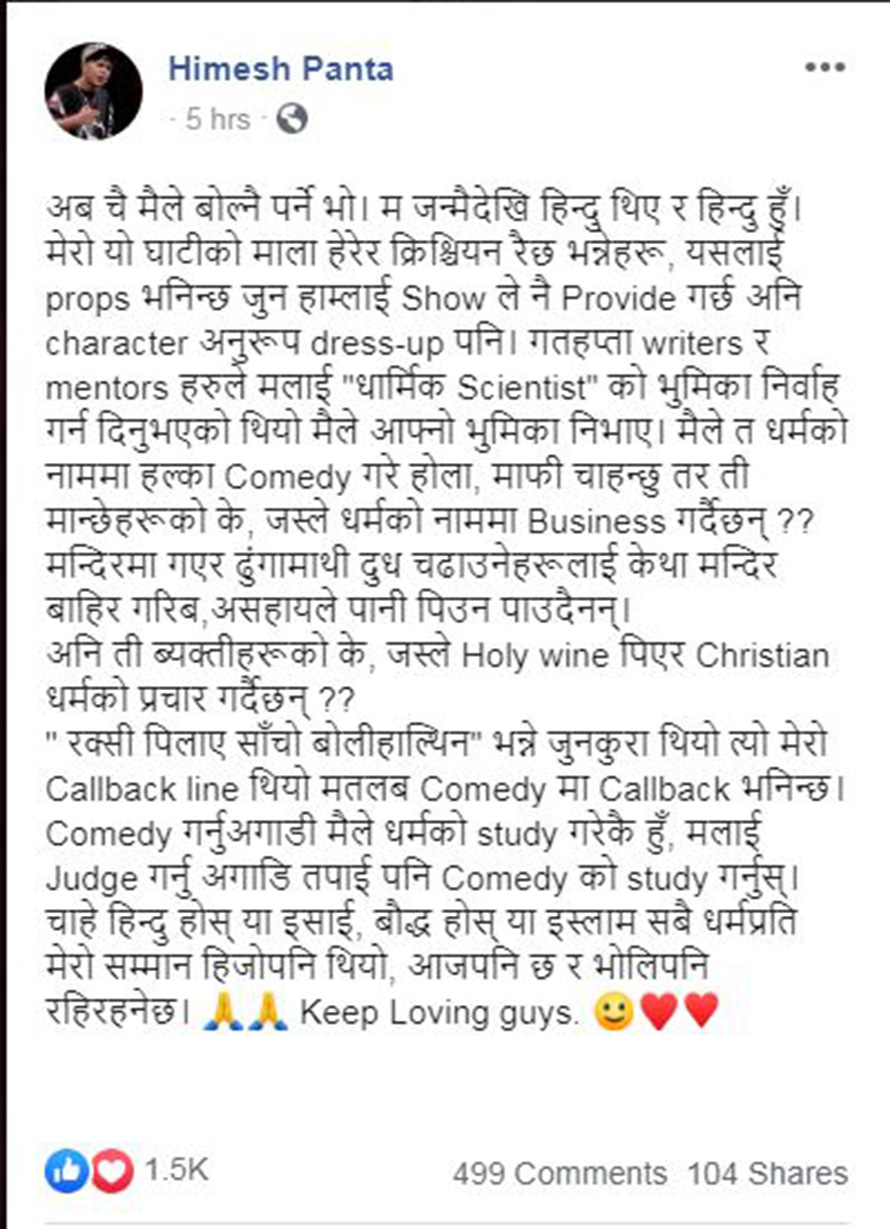 Himesh Panta
· 5 hrs ·
अब चै मैले बोल्नै पर्ने भो। म जन्मैदेखि हिन्दु थिए र हिन्दु हुँ।
मेरो यो घाटीको माला हेरेर क्रिश्चियन रैछ भन्नेहरू, यसलाई
props भनिन्छ जुन हाम्लाई Show ले नै Provide गर्छ अनि
character अनुरूप dress-up पनि। गतहप्ता writers र
mentors हरुले मलाई "धार्मिक Scientist" को भुमिका निर्वाह
गर्न दिनुभएको थियो मैले आफ्नो भुमिका निभाए। मैले त धर्मको
नाममा हल्का Comedy गरे होला, माफी चाहन्छु तर ती
मान्छेहरूको के, जस्ले धर्मको नाममा Business गर्दैछन् ??
मन्दिरमा गएर ढुंगामाथी दुध चढाउनेहरूलाई केथा मन्दिर
बाहिर गरिब,असहायले पानी पिउन पाउदैनन्।
अनि ती ब्यक्तीहरूको के, जस्ले Holy wine पिएर Christian
धर्मको प्रचार गर्दैछन् ??
" रक्सी पिलाए साँचो बोलीहाल्थिन" भन्ने जुनकुरा थियो त्यो मेरो
Callback line थियो मतलब Comedy मा Callback भनिन्छ।
Comedy गर्नुअगाडी मैले धर्मको study गरेकै हुँ, मलाई
Judge गर्नु अगाडि तपाई पनि Comedy को study गर्नुस्।
चाहे हिन्दु होस् या इसाई, बौद्ध होस् या इस्लाम सबै धर्मप्रति
मेरो सम्मान हिजोपनि थियो, आजपनि छ र भोलिपनि
रहिरहनेछ। 🙏🙏 Keep Loving guys. 🙂❤️❤️
1.5K
499 Comments 104 Shares